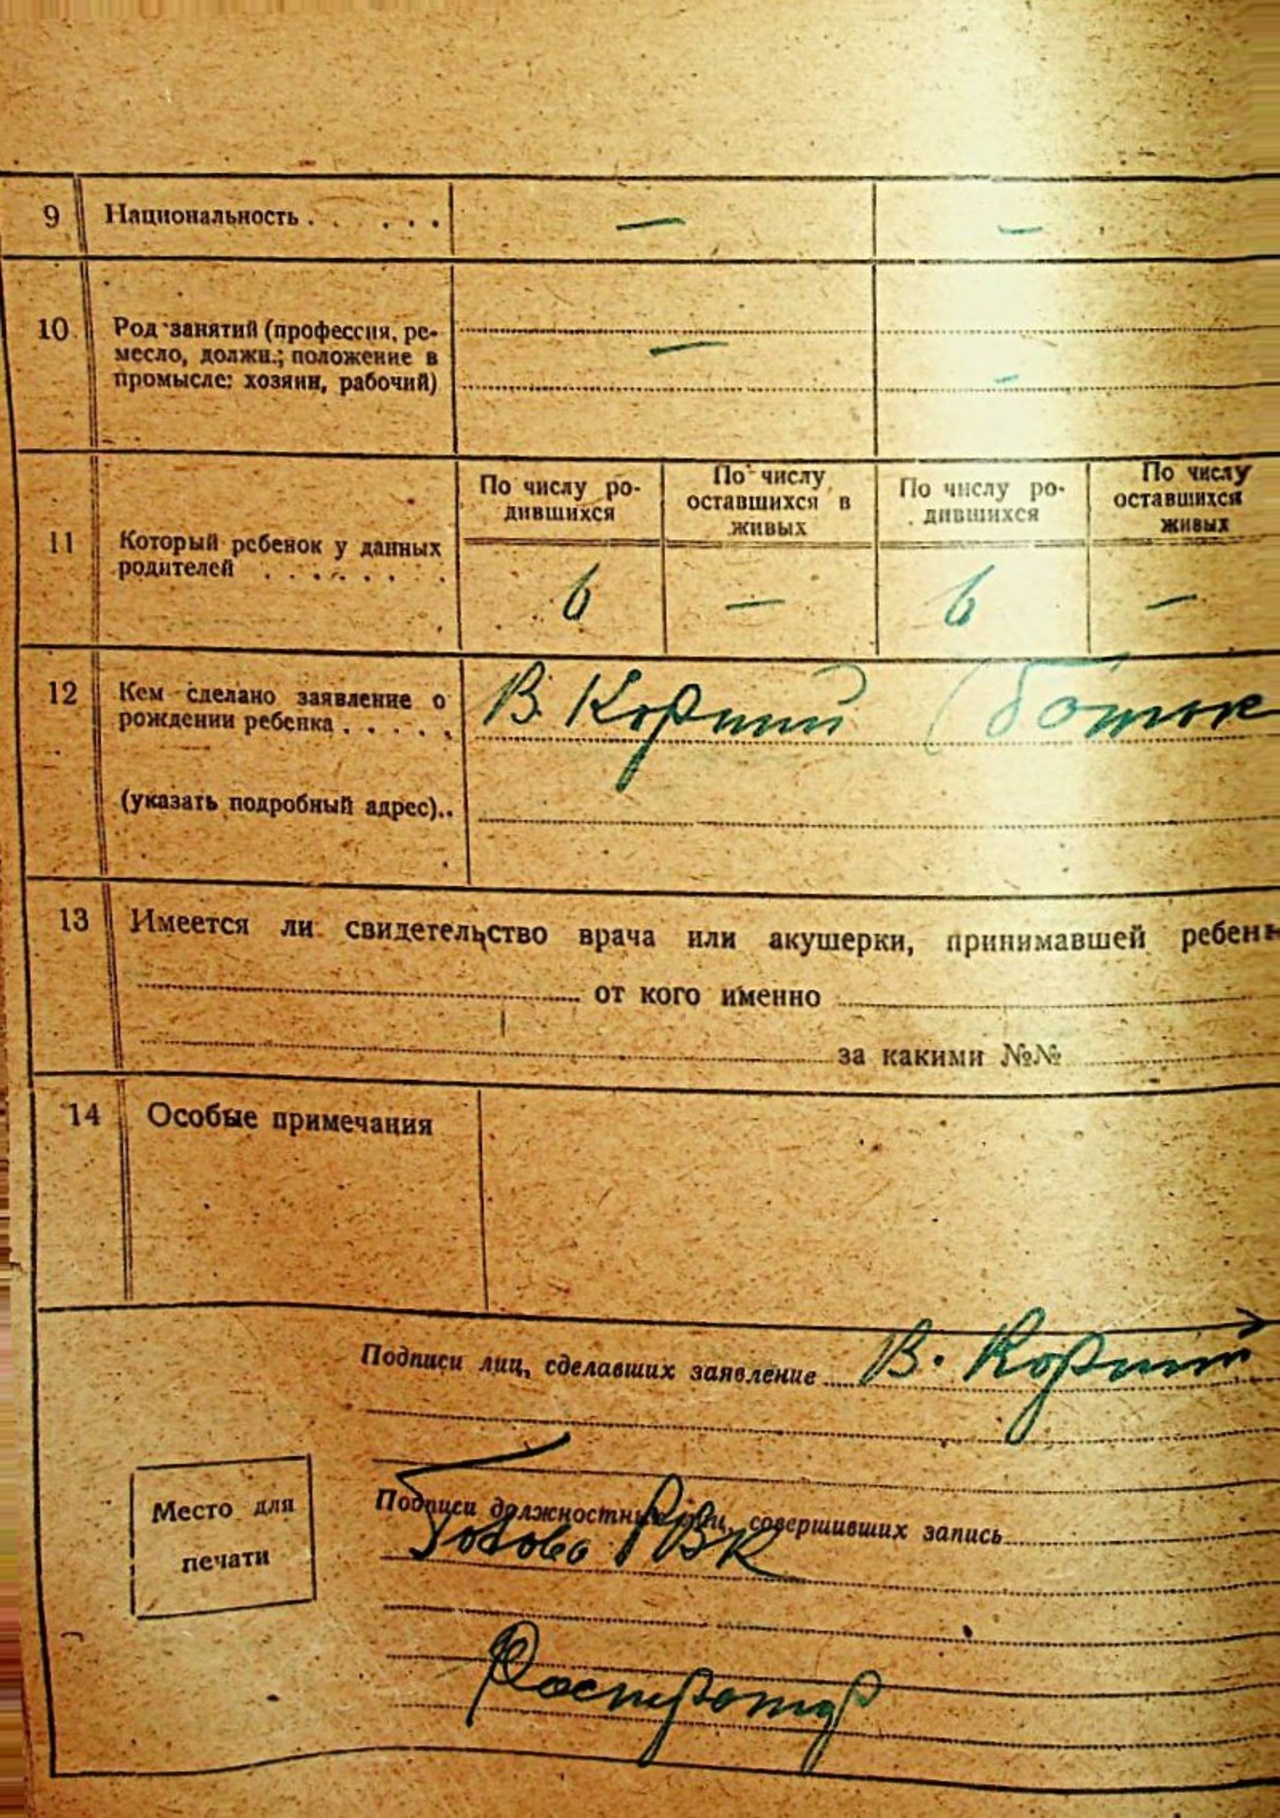 9 Национальность . . . . . — —
10. Род занятий (профессия, ре-
месло, должн.; положение в — 
промысле: хозяин, рабочий) —
По числу ро- По числу По числу ро- По числу
дившихся оставшихся в дившихся оставшихся
живых живых
11 Который ребенок у данных
родителей . . . . . . . 6 — 6 —
12 Кем сделано заявление о В. Корпий (батьк
рождении ребенка . . . . .
(указать подробный адрес)..
13 Имеется ли свидетельство врача или акушерки, принимавшей ребенк
от кого именно
за какими №№
14 Особые примечания
Подписи лиц, сделавших заявление В. Корпий
Место для
печати
Подписи должностных лиц, совершивших запись
Голова РВК